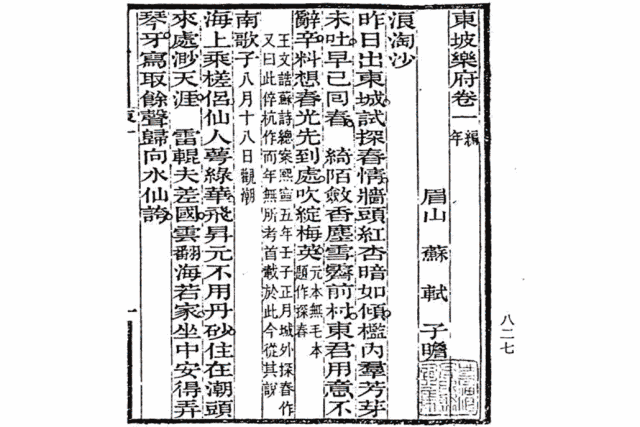 東坡樂府卷一編年
眉山 蘇軾 子瞻
浪淘沙
昨日出東城試探春情牆頭紅杏暗如傾檻內羣芳芽
未吐早已囘春 綺陌斂香塵雪霽前村東君用意不
辭辛料想春光先到處吹綻梅英元本無毛本題作探春
王文誥蘇詩總案熙寧五年壬子正月城外探春作
又曰此倅杭作而年無所考首載於此今從其說
南歌子八月十八日觀潮
海上乘槎侶仙人萼綠華飛昇元不用丹砂住在潮頭
來處渺天涯 雷輥夫差國雲翻海若家坐中安得弄
琴牙寫取餘聲歸向水仙誇
八二七